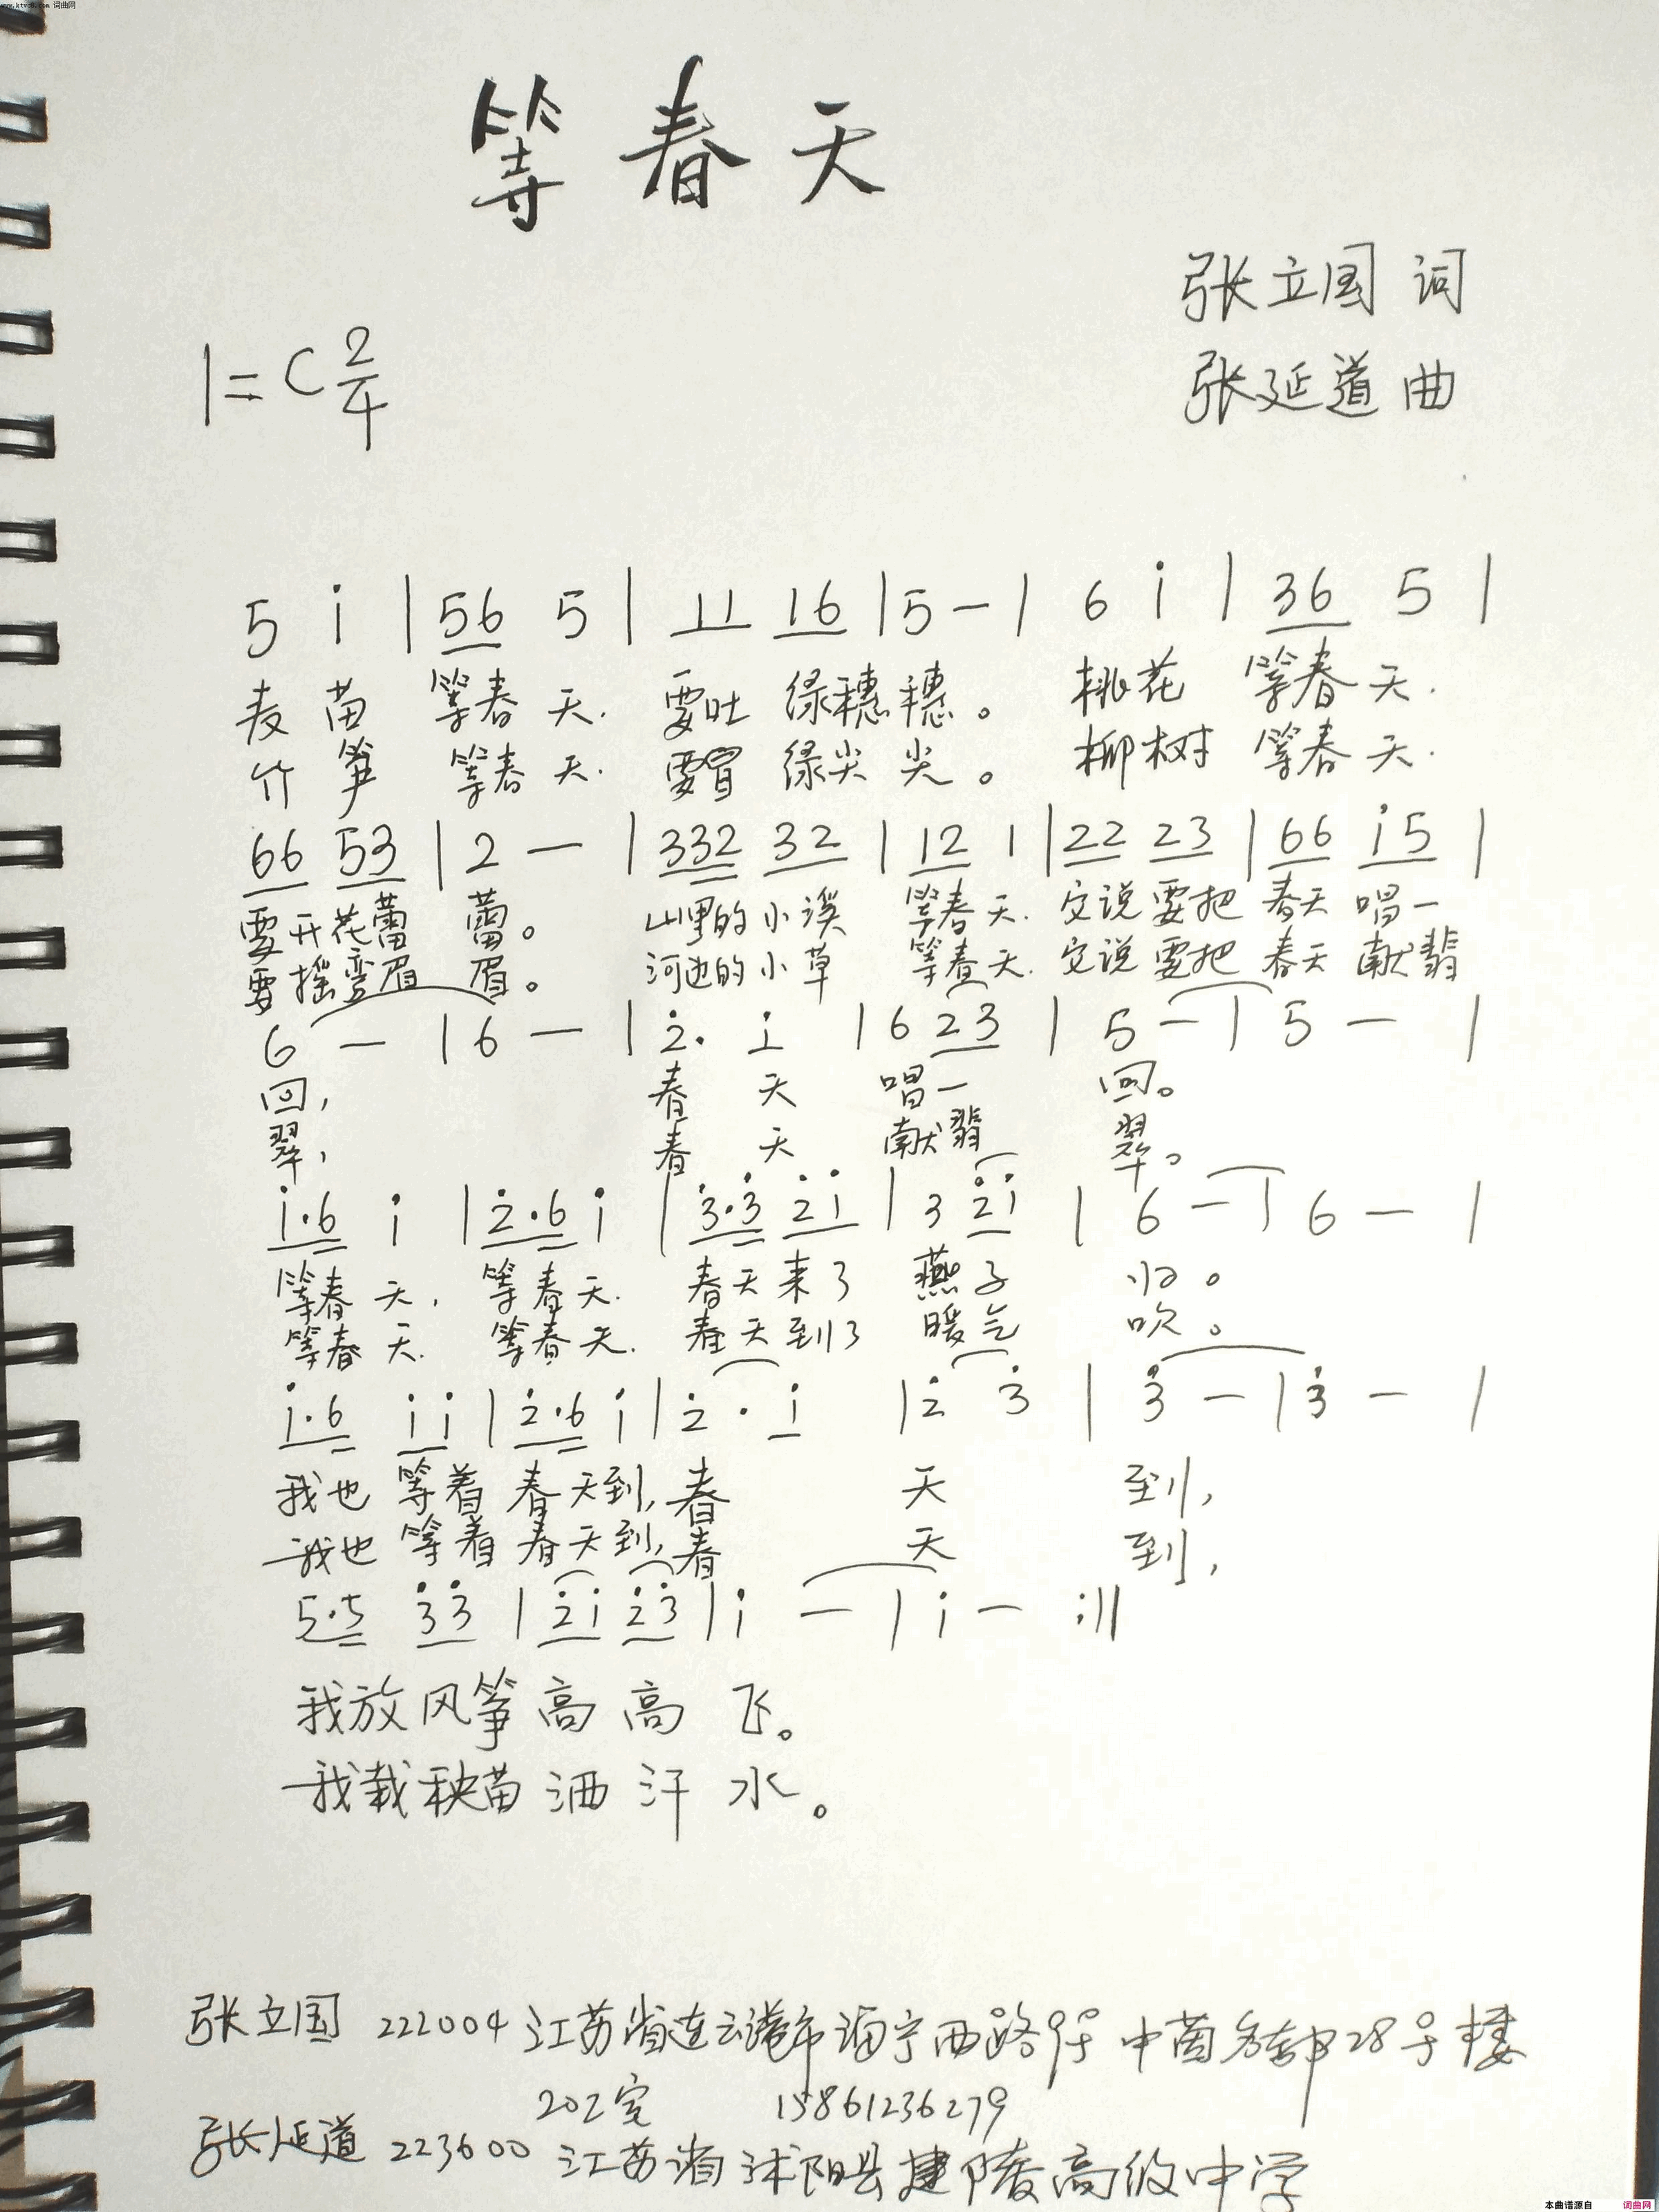 www.ktvc8.com 词曲网
等春天
张立国 词
1=C 2/4
张延道 曲
5 i | 56 5 | 11 16 | 5 - | 6 i | 36 5 |
麦 苗 等春 天. 要吐 绿穗 穗。 桃花 等春 天.
竹 笋 等春 天. 要冒 绿尖 尖。 柳树 等春 天.
66 53 | 2 - | 332 32 | 12 1 | 22 23 | 66 i5 |
要开花蕾 蕾。 山里的小溪 等春天. 它说要把 春天 唱一
要摇弯眉 眉。 河边的小草 等春天. 它说要把 春天 献翡
6 - | 6 - | 2̇. i | 6 23 | 5 - | 5 - |
回, 春 天 唱一 回。
翠, 春 天 献翡 翠。
i·6 i | 2̇·6 i | 3̇·3̇ 2̇i | 3 2̇i | 6 - | 6 - |
等春 天, 等春天. 春天来了 燕子 归。
等春 天. 等春天. 春天到了 暖气 吹。
i·6 ii | 2̇·6 i | 2̇· i | 2̇ 3̇ | 3̇ - | 3̇ - |
我也 等着 春天到, 春 天 到,
我也 等着 春天到, 春 天 到,
5·5 3̇3̇ | 2̇i 2̇3̇ | i - | i - :||
我放风筝高高 飞。
我栽秧苗洒汗 水。
张立国 222004 江苏省连云港市海宁西路9号 中茵名都28号楼
202室 15861236279
张延道 223600 江苏省沭阳县建陵高级中学
本曲谱源自 词曲网